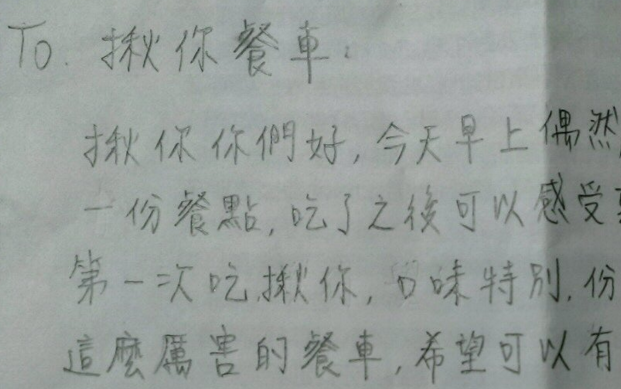 To. 揪你餐車：
揪你你們好, 今天早上偶然
一份餐點, 吃了之後可以感受
第一次吃揪你, 口味特別, 份
這麼厲害的餐車, 希望可以有